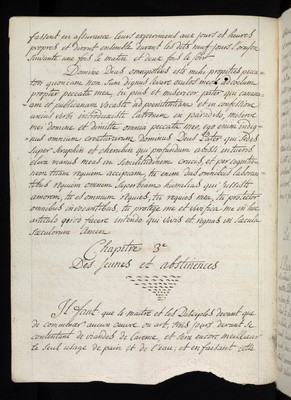 fassent en assurance leurs experiences aux jours et heures
propres et diront ensemble durant les dits neuf jours l'oraison
suivante une fois le matin et deux fois le soir
Domine Deus omnipotens esto mihi propitius pecca
tori quoniam non sum dignus levare oculos meos ad coelum
propter peccata mea, tu pius et misericors pater qui canane
am et publicanum vocasti ad poenitentiam et in confessione
unius verbi introduxisti latronem in paradisum, miserere
mei domine et dimitte omnia peccata mea, ego enim indig
nus omnium creaturarum Dominus Deus Pater qui sedes
super Seraphin et cherubin qui profundum abissi intueris
eleva manus meas in similitudinem crucis, et per cognitio
nem tuam requiem accipiam, tu enim das omnibus laboran
tibus requiem omnium superbiam humilias qui
amorem, tu es omnium requies, tu requies mea, tu protector
omnibus invocantibus, tu protege me et vivifica me in hoc
articulo quod facere intendo qui vivis et regnas in saecula
saeculorum Amen
Chapitre 3e
Des jeunes et abstinences
Il faut que le maitre et les Disciples devant que
de commencer aucun oeuvre ou art, trois jours devant se
contentent de viandes de Careme, et sera encore meilleur
le seul usage de pain et de l'eau, et en faisant cette